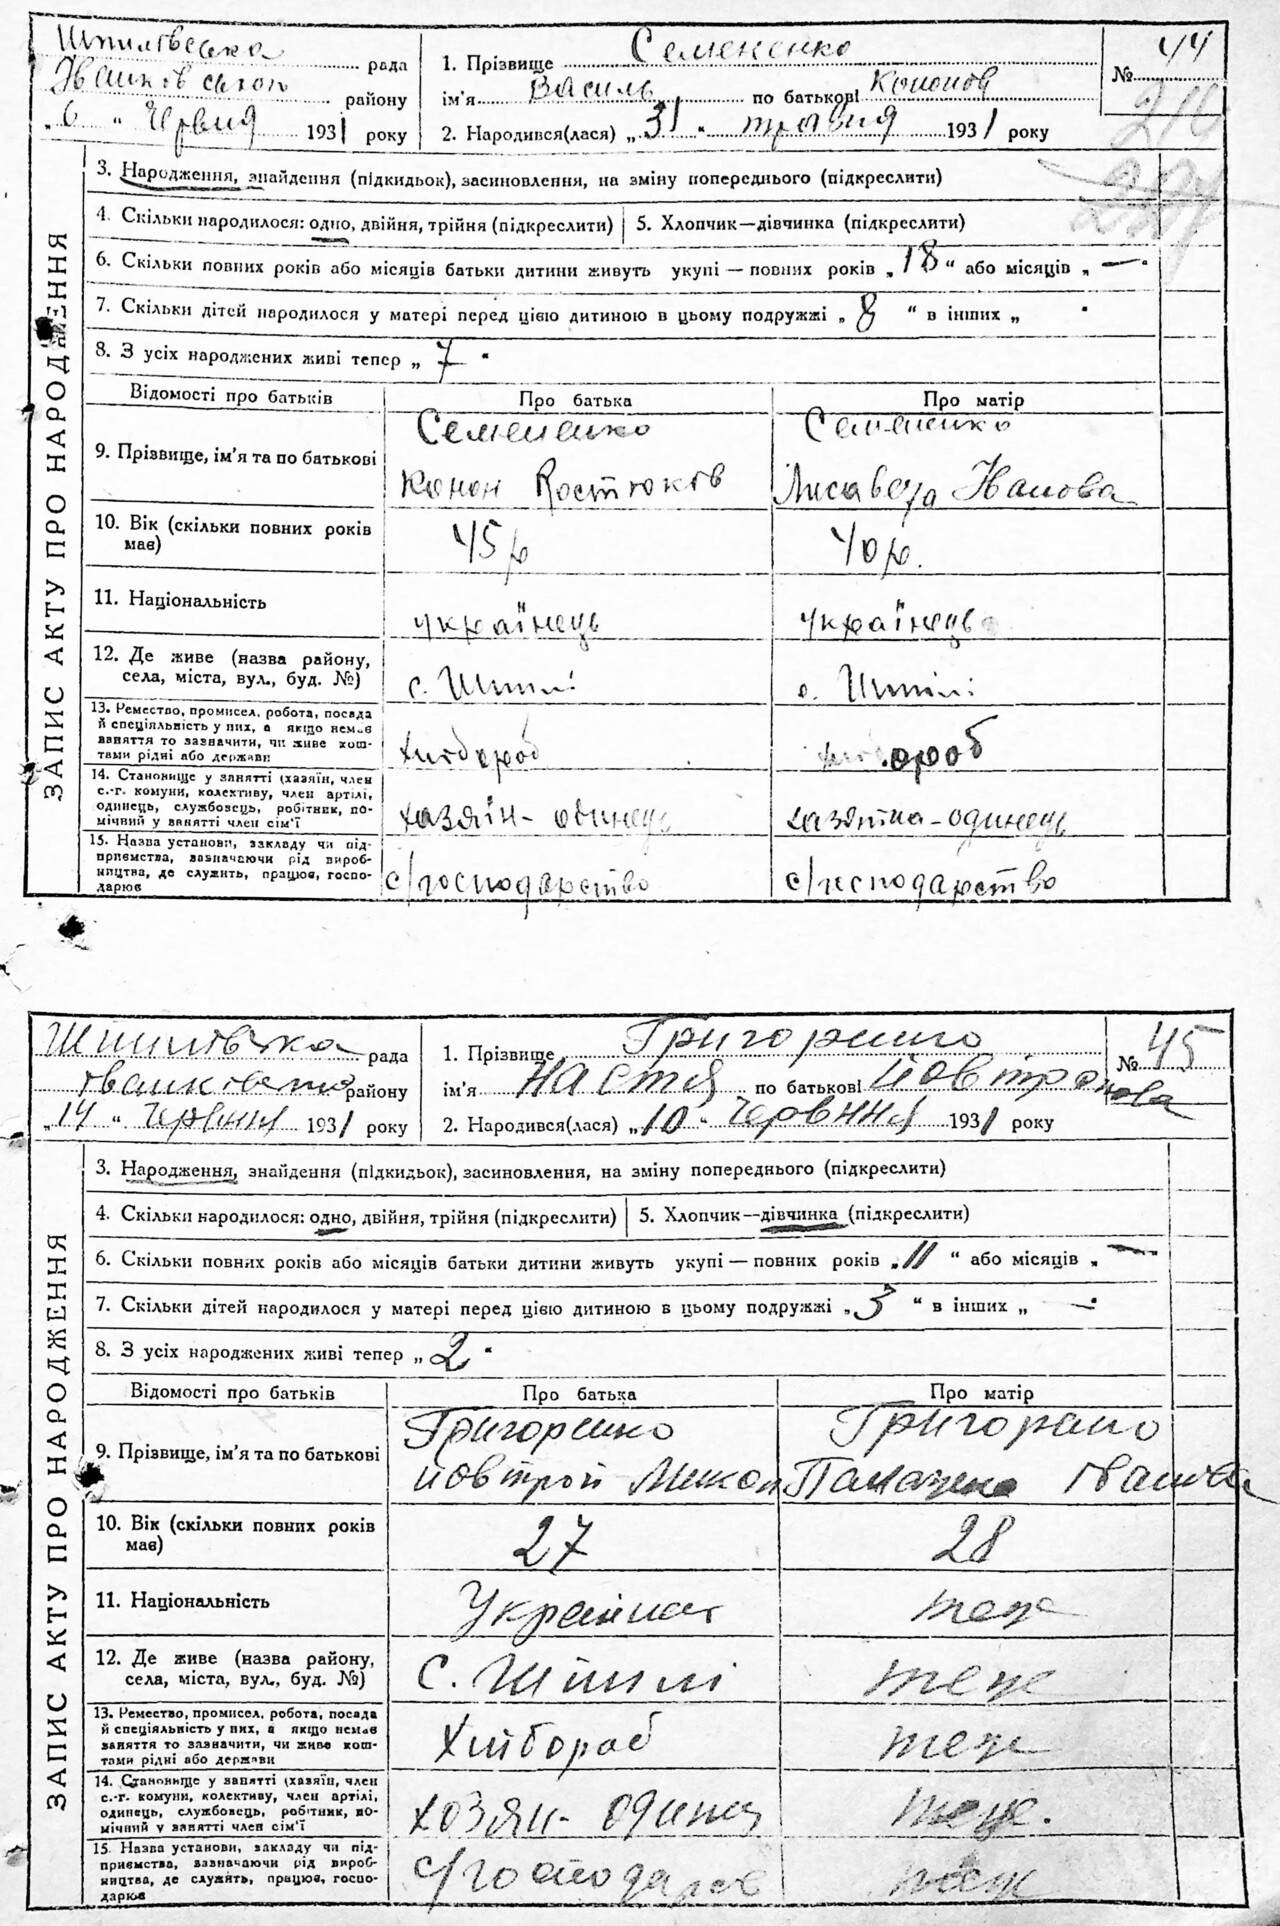 Шпилівська рада
Іванковського району
„6" Червня 1931 року
1. Прізвище Семененко
ім'я Василь по батькові Кононов
2. Народився(лася) „31" травня 1931 року
№ 44
210
ЗАПИС АКТУ ПРО НАРОДЖЕННЯ
3. Народження, знайдення (підкидьок), засиновлення, на зміну попереднього (підкреслити)
4. Скільки народилося: одно, двійня, трійня (підкреслити) 5. Хлопчик—дівчинка (підкреслити)
6. Скільки повних років або місяців батьки дитини живуть укупі — повних років „18" або місяців „—"
7. Скільки дітей народилося у матері перед цією дитиною в цьому подружжі „8" в інших „ "
8. З усіх народжених живі тепер „7"
Відомості про батьків Про батька Про матір
9. Прізвище, ім'я та по батькові
Семененко Семененко
Конон Костюков Лисавета Іванова
10. Вік (скільки повних років має) 45 р 40 р.
11. Національність українець українець
12. Де живе (назва району, села, міста, вул., буд. №) с. Шпилі с. Шпилі
13. Ремество, промисел, робота, посада й спеціяльність у них, а якщо немає заняття то зазначити, чи живе коштами рідні або держави хлібороб хлібороб
14. Становище у занятті (хазяїн, член с.-г. комуни, колективу, член артілі, одинець, службовець, робітник, помічний у занятті член сім'ї хазяїн-одинець хазяїка-одинець
15. Назва установи, закладу чи підприємства, зазначаючи рід виробництва, де служить, працює, господарює с/господарство с/господарство
Шпилівська рада
Іванківського району
„14" Червння 1931 року
1. Прізвище Григоренко
ім'я Настя по батькові Йовтронова
2. Народився(лася) „10" Червння 1931 року
№ 45
ЗАПИС АКТУ ПРО НАРОДЖЕННЯ
3. Народження, знайдення (підкидьок), засиновлення, на зміну попереднього (підкреслити)
4. Скільки народилося: одно, двійня, трійня (підкреслити) 5. Хлопчик—дівчинка (підкреслити)
6. Скільки повних років або місяців батьки дитини живуть укупі — повних років „11" або місяців „—"
7. Скільки дітей народилося у матері перед цією дитиною в цьому подружжі „3" в інших „—"
8. З усіх народжених живі тепер „2"
Відомості про батьків Про батька Про матір
9. Прізвище, ім'я та по батькові
Григоренко Григоренко
Йовтроп Микол Іванова
10. Вік (скільки повних років має) 27 28
11. Національність теж
12. Де живе (назва району, села, міста, вул., буд. №) с. Шпилі теж
13. Ремество, промисел, робота, посада й спеціяльність у них, а якщо немає заняття то зазначити, чи живе коштами рідні або держави Хлібороб теж
14. Становище у занятті (хазяїн, член с.-г. комуни, колективу, член артілі, одинець, службовець, робітник, помічний у занятті член сім'ї хозяін-одинец теж.
15. Назва установи, закладу чи підприємства, зазначаючи рід виробництва, де служать, працює, господарює с/господарств теж